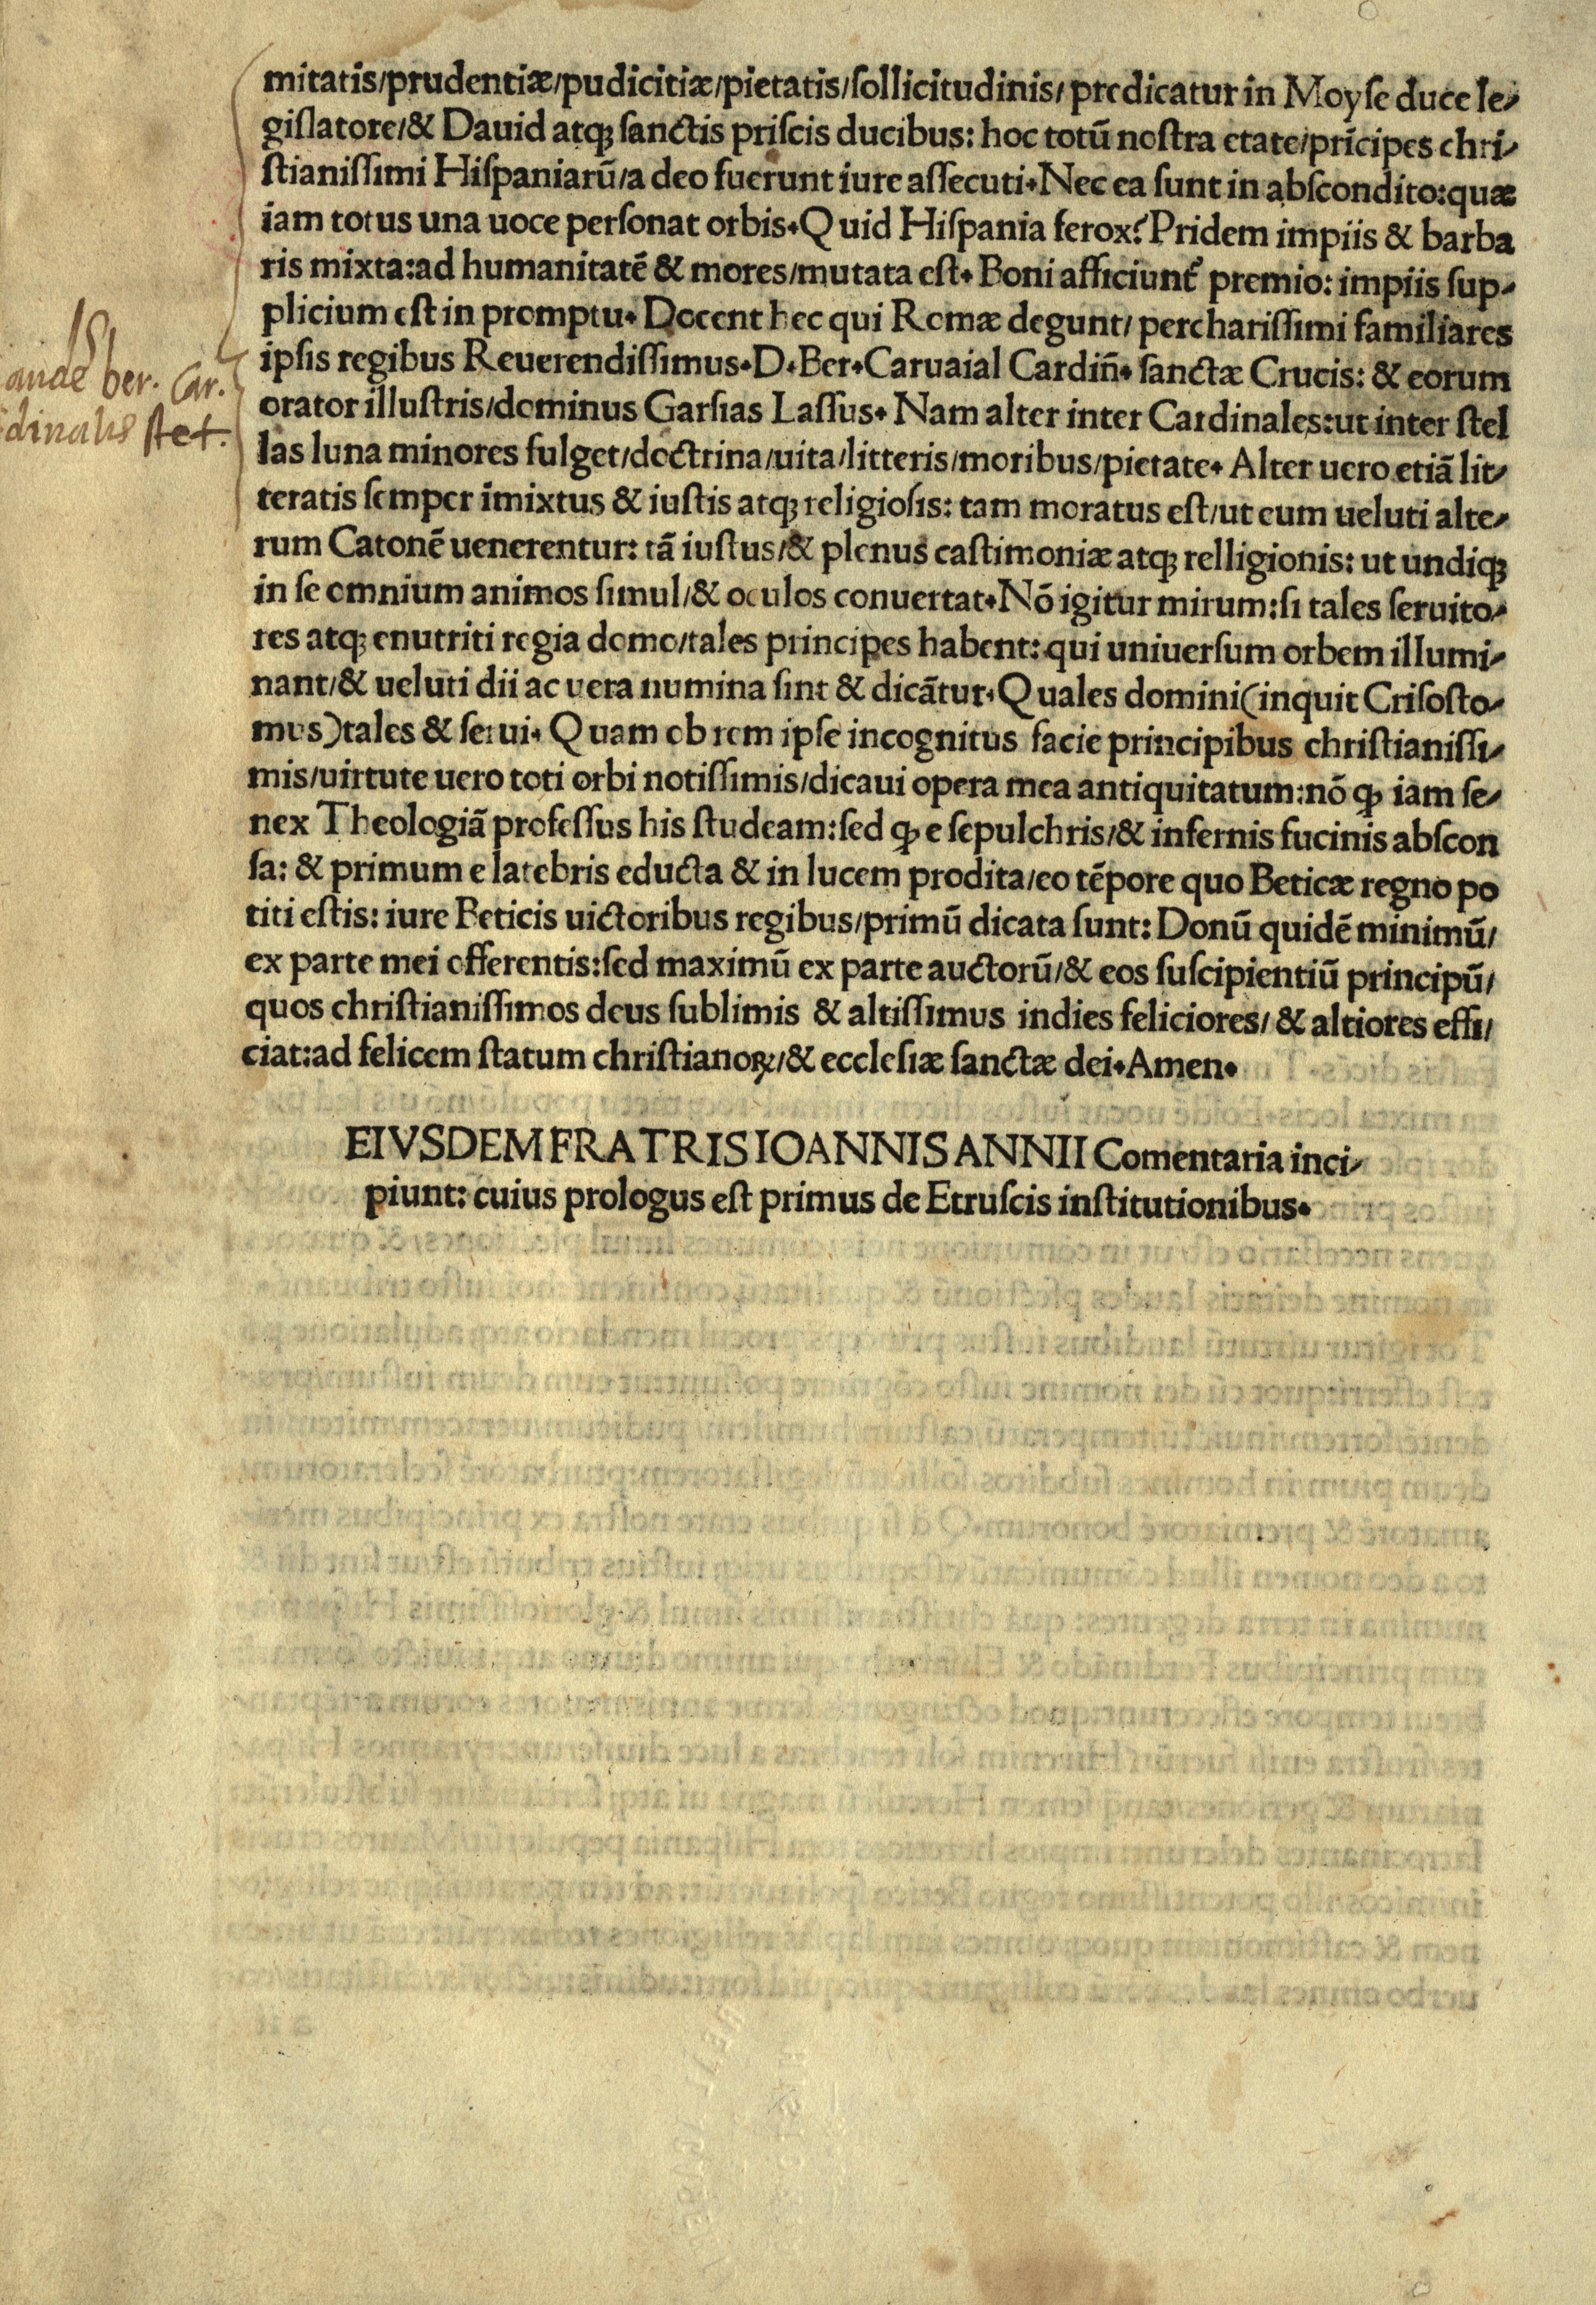 mitatis/prudentiæ/pudicitiæ/pietatis/sollicitudinis/ predicatur in Moyse duce le/
gislatore/& Dauid atqꝫ sanctis priscis ducibus: hoc totū nostra etate/prīcipes chri/
stianissimi Hispaniarū/a deo fuerunt iure assecuti. Nec ea sunt in abscondito: quæ
iam totus una uoce personat orbis. Quid Hispania ferox? Pridem impiis & barba
ris mixta: ad humanitatē & mores/mutata est. Boni afficiunt᷑ premio: impiis sup/
plicium est in promptu. Docent hec qui Romæ degunt/ percharissimi familiares
ipsis regibus Reuerendissimus. D. Ber. Caruaial Cardin̄. sanctæ Crucis: & eorum
orator illustris/dominus Garsias Lassus. Nam alter inter Cardinales: ut inter stel
las luna minores fulget/doctrina/uita/litteris/moribus/pietate. Alter uero etiā lit/
teratis semper īmixtus & iustis atqꝫ religiosis: tam moratus est/ut eum ueluti alte/
rum Catonē uenerentur: tā iustus/& plenus castimoniæ atqꝫ relligionis: ut undiqꝫ
in se omnium animos simul/& oculos conuertat. Nō igitur mirum: si tales seruito/
res atqꝫ enutriti regia domo/tales principes habent: qui uniuersum orbem illumi/
nant/& ueluti dii ac uera numina sint & dicātur. Quales domini (inquit Crisosto/
mus) tales & serui. Quam ob rem ipse incognitus facie principibus christianissi/
mis/uirtute uero toti orbi notissimis/dicaui opera mea antiquitatum: nō ꝙ iam se/
nex Theologiā professus his studeam: sed ꝙ e sepulchris/& infernis fucinis abscon
sa: & primum e latebris educta & in lucem prodita/eo tēpore quo Beticæ regno po
titi estis: iure Beticis uictoribus regibus/primū dicata sunt: Donū quidē minimū/
ex parte mei offerentis: sed maximū ex parte auctorū/& eos suscipientiū principū/
quos christianissimos deus sublimis & altissimus indies feliciores/ & altiores effi/
ciat: ad felicem statum christianoꝝ/& ecclesiæ sanctæ dei. Amen.
EIVSDEM FRATRIS IOANNIS ANNII Comentaria inci/
piunt: cuius prologus est primus de Etruscis institutionibus.
ber. Car.
dinalis stet.